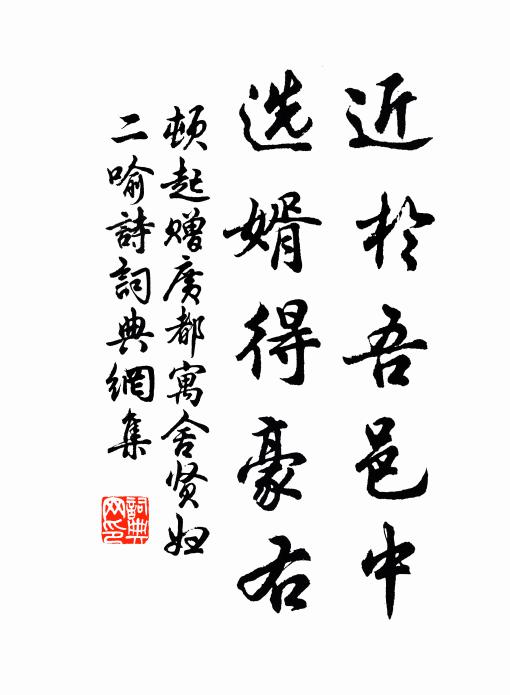 近於吾邑中
选婿得豪右
顿起赠广都寓舍贤妇
二喻詩詞典網集
詞典網印